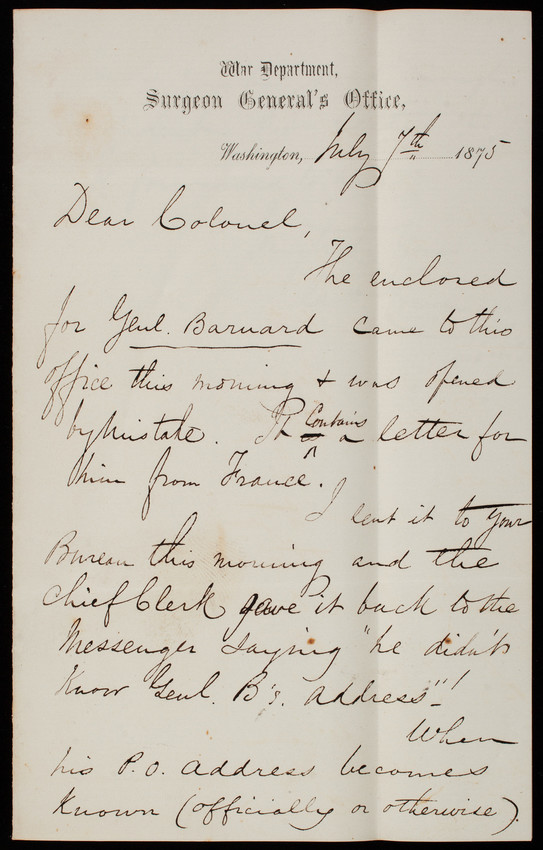 War Department,
Surgeon General's Office,
Washington, July 7th 1875
Dear Colonel,
The enclosed
for Genl. Barnard came to this
office this morning & was opened
by mistake. It contains a letter for
him from France.
I sent it to your
Bureau this morning and the
Chief Clerk gave it back to the
Messenger saying "he didn't
know Genl. B's. address"!
When
his P.O. address becomes
known (officially or otherwise).